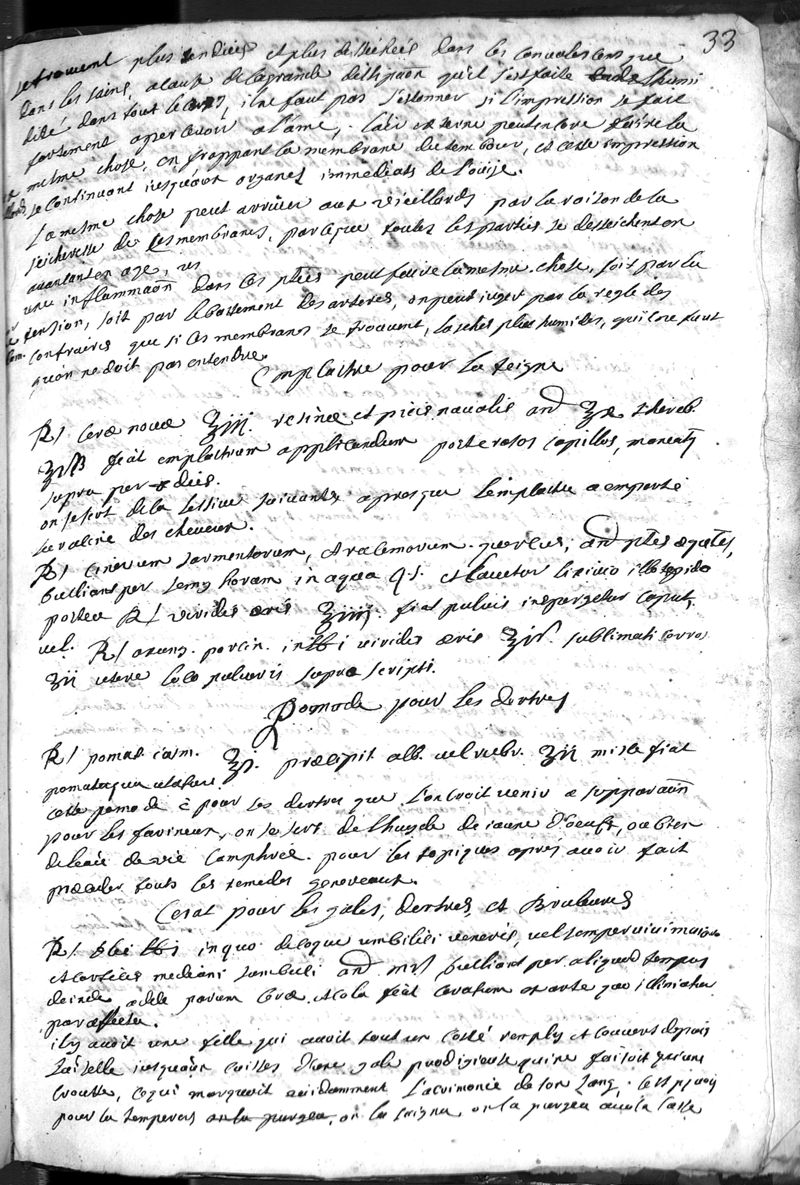 33
se trouvent plus tendües et plus desséchées dans les convalescens que
dans les sains, a cause de la grande dissipaōn qu'il s'est faite
dité dans tout le corps, il ne faut pas s'estonner si l'impression se fait
fortement apercevoir a l'ame, l'air externe peut encore faire la
mesme chose, en frappant la membrane du tembour, et cette impression
se continuant iusqu'aux organes immediats de l'ouïe.
La mesme chose peut arriver aux vieillards par la raison de la
seicheresse de ces membranes, parceque toutes les parties se desseichent en
avancant en age,
une inflammaōn dans ces parties peut faire la mesme chose, soit par la
tension, soit par battement des arteres, on peut iuger par la regle des
contraires que si les membranes se trouvent lasches plus humides, qu'il ne faut
qu'on ne doit pas entendre.
Emplastre pour la teigne
R/ Cerae novae ʒiii. resinae et picis navalis an̄ thereb.
fiat emplastrum applicandum post rasos capillos, moneat
supra per dies.
on se sert de la lessive suivante apres que l'emplastre a emporté
la racine des cheveux.
R/ cinerum sarmentorum, et racemorum quercus, an̄ p̄tes aequales,
bulliant per horam in aqua q.s. et lavetur lixivio illo tepido
postea R/ viridis aeris ʒiiii. fiat pulvis inspergetur caput,
vel. R/ axung. porcin. viridis aeris sublimati corro
ʒii utere loco pulveris supra scripti.
Pomade pour les dertres
R/ pomat. praecipit. alb. vel rubr. ʒii misce fiat
pomatoque utatur.
cette pomade ē pour les dertres que l'on croit venir a suppuraōn
pour les farineux, on se sert de l'huyle de iaune d'oeuf, ou bien
de l'eau de vie camphrée. pour les topiques apres avoir fait
preceder touts les remedes generaux.
Cerat pour les gales, dertres, et Brulures
R/ olei in quo decoque umbilici veneris, vel sempervivi maioris
et corticis mediani sambuci an̄ bulliant per aliquod tempus
deinde adde parum cerae et cola fiat ceratum et arte quo illiniatur
pars affecta.
il y avoit une fille qui avoit tout un costé remply et couvert depuis
l'aiselle iusqu'aux cuisses d'une gale prodigieuse qui ne faisoit qu'une
croutte, ce qui marquoit evidamment l'acrimonie de son sang, c'est pquoy
pour la temperer on la purgea, on la saigna, on la purgea avec la casse